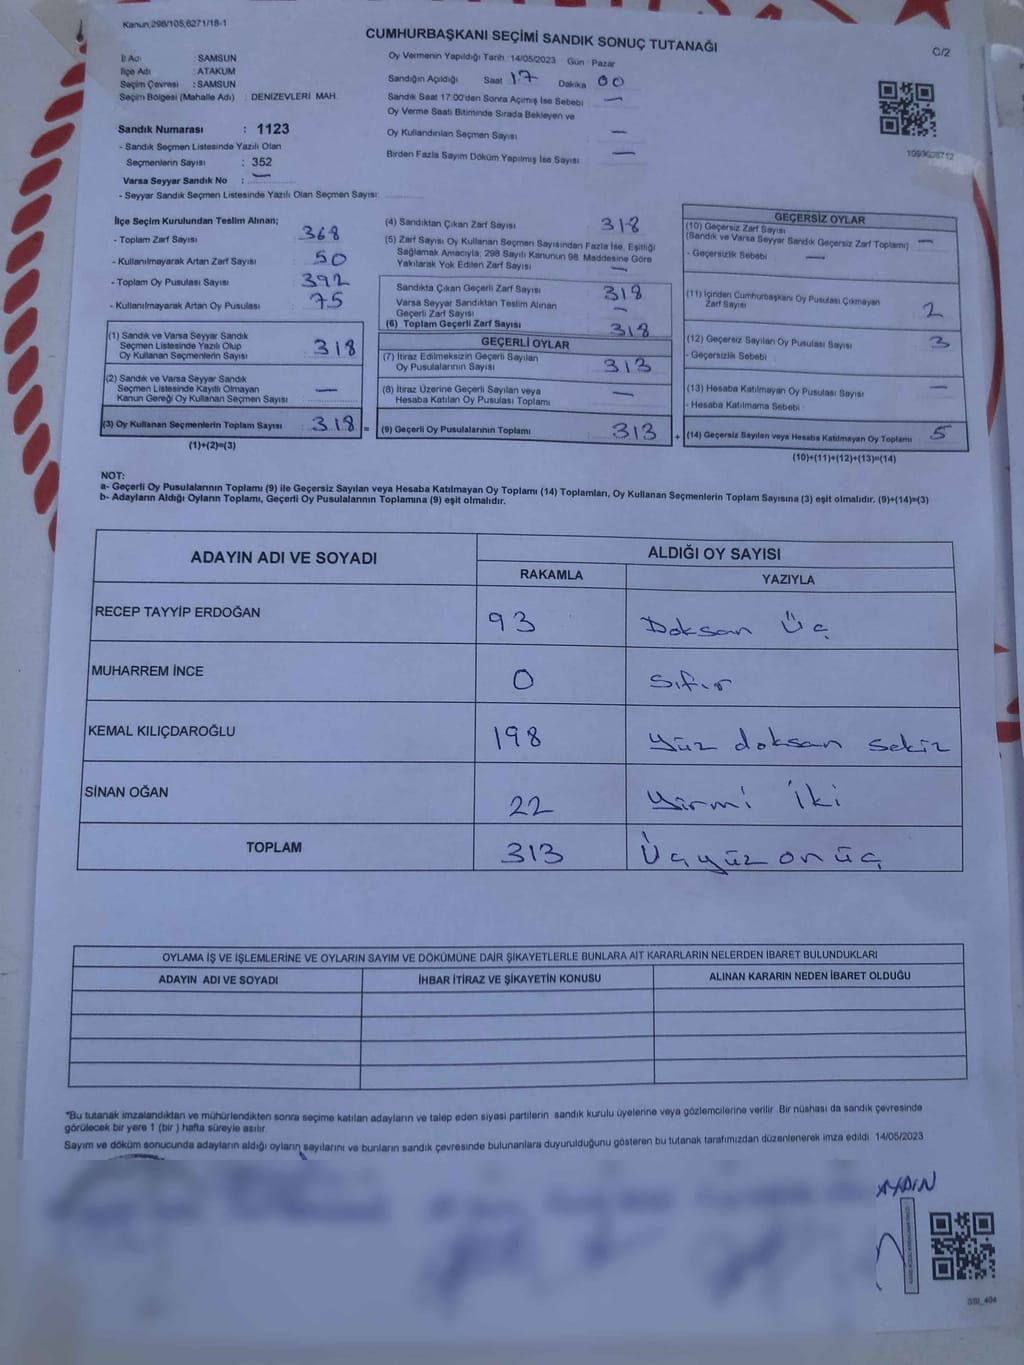 Kanun:298/105;6271/18-1
CUMHURBAŞKANI SEÇİMİ SANDIK SONUÇ TUTANAĞI
C/2
İl Adı : SAMSUN
İlçe Adı : ATAKUM
Seçim Çevresi : SAMSUN
Seçim Bölgesi (Mahalle Adı) : DENİZEVLERİ MAH.
Sandık Numarası : 1123
- Sandık Seçmen Listesinde Yazılı Olan
Seçmenlerin Sayısı : 352
Varsa Seyyar Sandık No : —
- Seyyar Sandık Seçmen Listesinde Yazılı Olan Seçmen Sayısı:
Oy Vermenin Yapıldığı Tarih : 14/05/2023 Gün : Pazar
Sandığın Açıldığı Saat 17 Dakika 00
Sandık Saat 17:00'den Sonra Açımış İse Sebebi —
Oy Verme Saati Bitiminde Sırada Bekleyen ve
Oy Kullandırılan Seçmen Sayısı —
Birden Fazla Sayım Döküm Yapılmış İse Sayısı —
1099628712
İlçe Seçim Kurulundan Teslim Alınan;
- Toplam Zarf Sayısı 368
- Kullanılmayarak Artan Zarf Sayısı 50
- Toplam Oy Pusulası Sayısı 392
- Kullanılmayarak Artan Oy Pusulası 75
(1) Sandık ve Varsa Seyyar Sandık
Seçmen Listesinde Yazılı Olup
Oy Kullanan Seçmenlerin Sayısı 318
(2) Sandık ve Varsa Seyyar Sandık
Seçmen Listesinde Kayıtlı Olmayan
Kanun Gereği Oy Kullanan Seçmen Sayısı —
(3) Oy Kullanan Seçmenlerin Toplam Sayısı 318 =
(1)+(2)=(3)
(4) Sandıktan Çıkan Zarf Sayısı 318
(5) Zarf Sayısı Oy Kullanan Seçmen Sayısından Fazla İse, Eşitliği
Sağlamak Amacıyla; 298 Sayılı Kanunun 98. Maddesine Göre
Yakılarak Yok Edilen Zarf Sayısı —
Sandıkta Çıkan Geçerli Zarf Sayısı 318
Varsa Seyyar Sandıktan Teslim Alınan
Geçerli Zarf Sayısı —
(6) Toplam Geçerli Zarf Sayısı 318
GEÇERLİ OYLAR
(7) İtiraz Edilmeksizin Geçerli Sayılan
Oy Pusulalarının Sayısı 313
(8) İtiraz Üzerine Geçerli Sayılan veya
Hesaba Katılan Oy Pusulası Toplamı —
(9) Geçerli Oy Pusulalarının Toplamı 313 +
GEÇERSİZ OYLAR
(10) Geçersiz Zarf Sayısı
(Sandık ve Varsa Seyyar Sandık Geçersiz Zarf Toplamı) —
- Geçersizlik Sebebi —
(11) İçinden Cumhurbaşkanı Oy Pusulası Çıkmayan
Zarf Sayısı 2
(12) Geçersiz Sayılan Oy Pusulası Sayısı 3
- Geçersizlik Sebebi
(13) Hesaba Katılmayan Oy Pusulası Sayısı —
- Hesaba Katılmama Sebebi
(14) Geçersiz Sayılan veya Hesaba Katılmayan Oy Toplamı 5
(10)+(11)+(12)+(13)=(14)
NOT:
a- Geçerli Oy Pusulalarının Toplamı (9) ile Geçersiz Sayılan veya Hesaba Katılmayan Oy Toplamı (14) Toplamları, Oy Kullanan Seçmenlerin Toplam Sayısına (3) eşit olmalıdır. (9)+(14)=(3)
b- Adayların Aldığı Oyların Toplamı, Geçerli Oy Pusulalarının Toplamına (9) eşit olmalıdır.
ADAYIN ADI VE SOYADI
ALDIĞI OY SAYISI
RAKAMLA YAZIYLA
RECEP TAYYİP ERDOĞAN 93 Doksan Üç
MUHARREM İNCE 0 sıfır
KEMAL KILIÇDAROĞLU 198 yüz doksan sekiz
SİNAN OĞAN 22 Yirmi İki
TOPLAM 313 Üçyüzonüç
OYLAMA İŞ VE İŞLEMLERİNE VE OYLARIN SAYIM VE DÖKÜMÜNE DAİR ŞİKAYETLERLE BUNLARA AİT KARARLARIN NELERDEN İBARET BULUNDUKLARI
ADAYIN ADI VE SOYADI İHBAR İTİRAZ VE ŞİKAYETİN KONUSU ALINAN KARARIN NEDEN İBARET OLDUĞU
*Bu tutanak imzalandıktan ve mühürlendikten sonra seçime katılan adayların ve talep eden siyasi partilerin sandık kurulu üyelerine veya gözlemcilerine verilir. Bir nüshası da sandık çevresinde
görülecek bir yere 1 (bir ) hafta süreyle asılır.
Sayım ve döküm sonucunda adayların aldığı oyların sayılarını ve bunların sandık çevresinde bulunanlara duyurulduğunu gösteren bu tutanak tarafımızdan düzenlenerek imza edildi. 14/05/2023
AYDIN